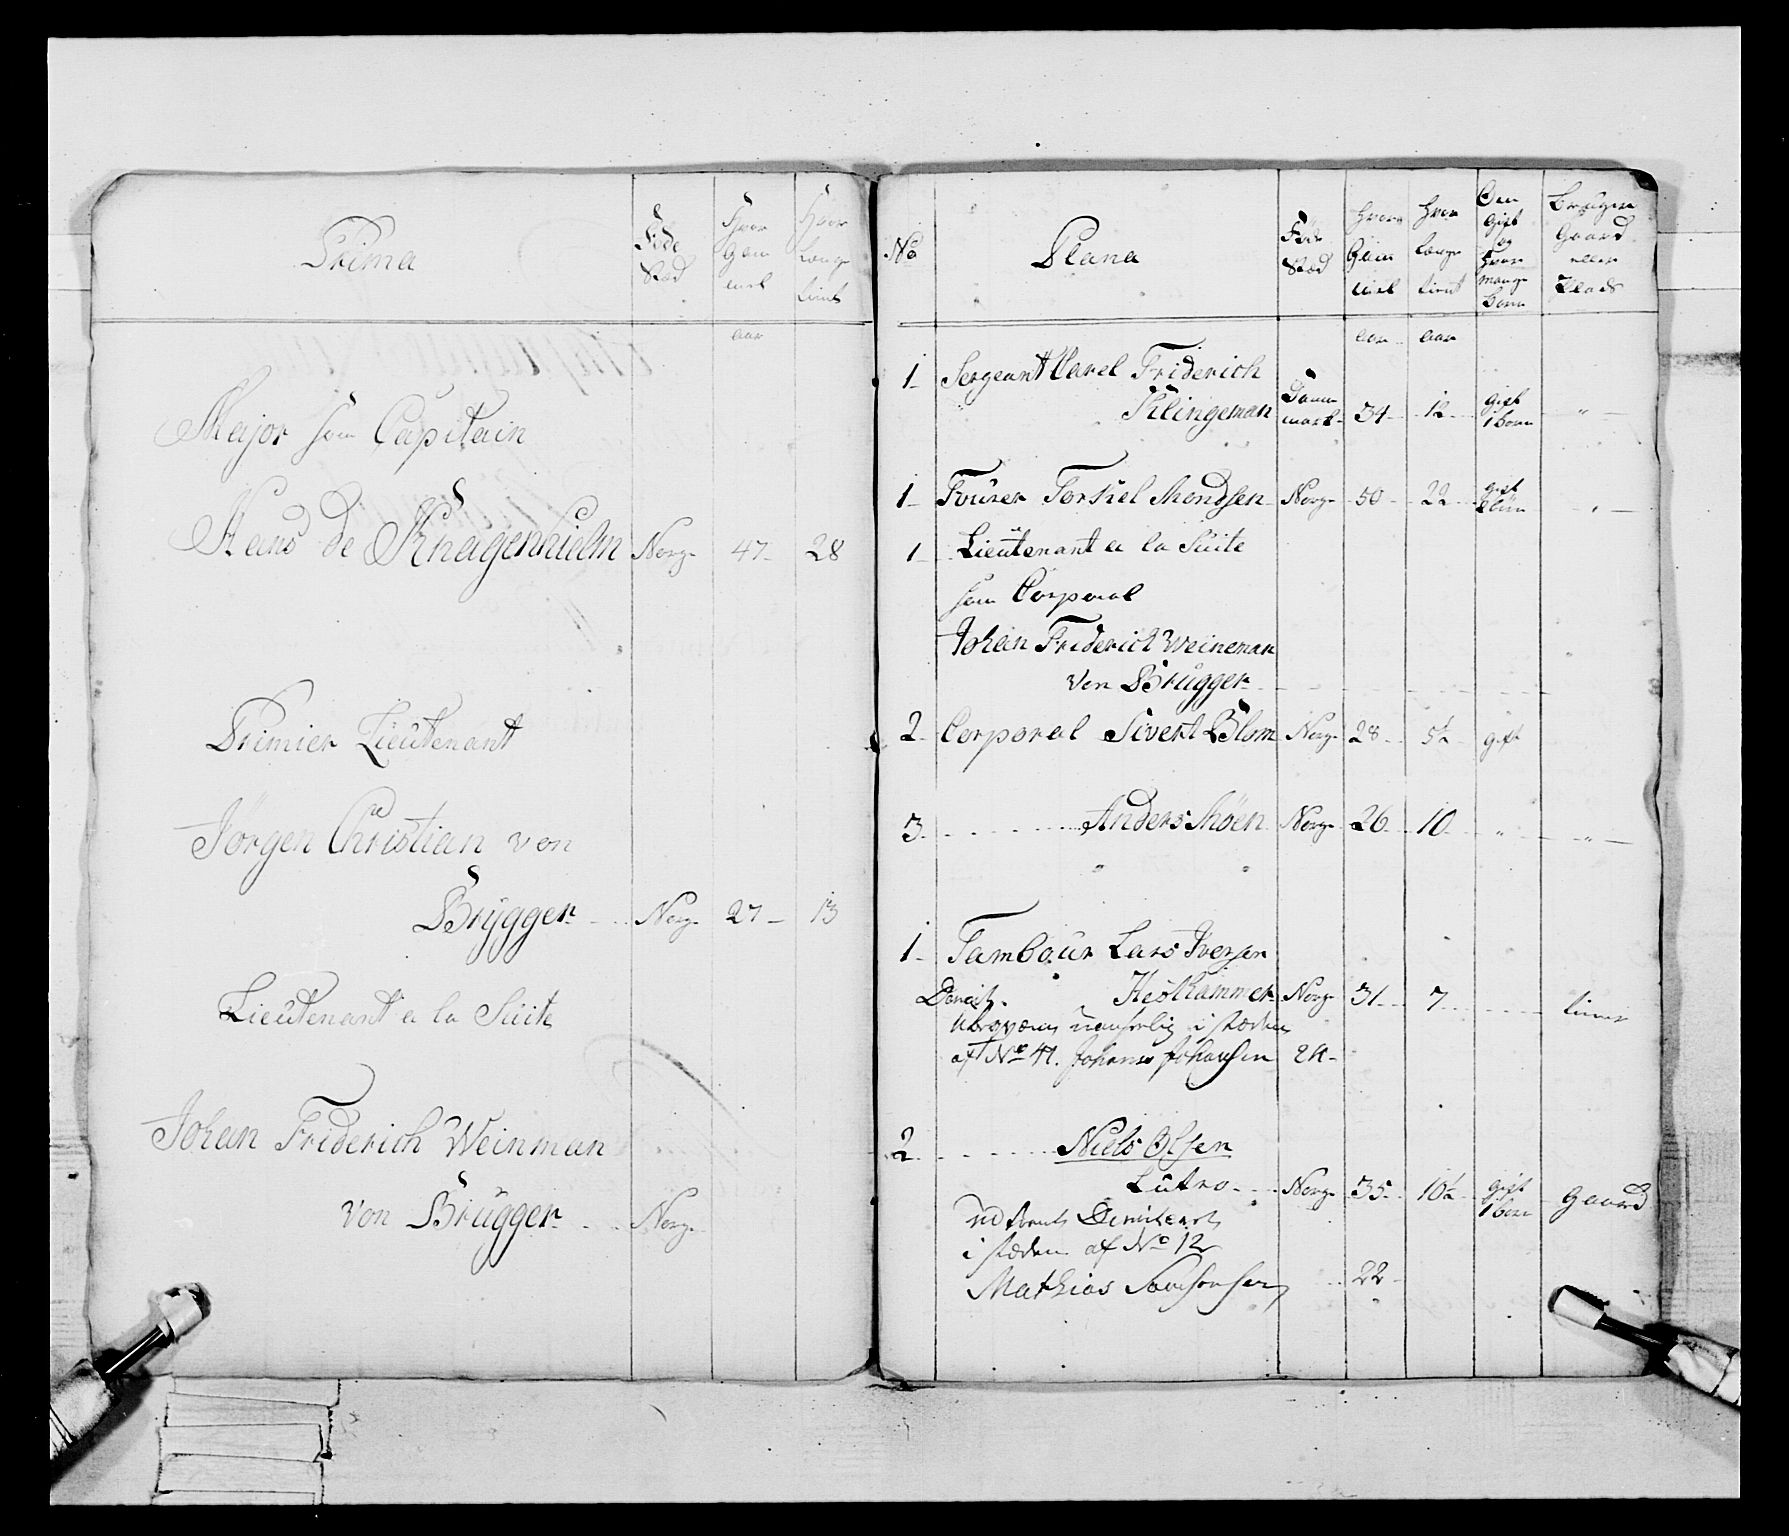 Prima
Føde
Stæd
Hvor
Gam
mel
Hvor
længe
tient
aar
Major som Capitain
Hans de Knagenhielm Norge 47 28
Premier Lieutenant
Jörgen Christian von
Brÿgger Norge 27 13
Lieutenant a la Süite
Johan Friderich Weinman
von Brügger Norge
No
Plana
Føde
Stæd
Hvor
Gam
mel
Hvor
længe
tient
Om
Gift
og
Hvor
mange
Børn
Bruger
Gaard
eller
Plads
aar aar
1 Sergeant Carel Friderich
Klingeman Danmark 34 12 gift 1 barn "
1 Fourer Torkiel Mondsen Norge 50 22 gift "
1 Lieutenant a la Süite
som Corporal
Johan Friderich Weineman
von Brügger
2 Corporal Sivert Blom Norge 28 5½ gift
3 Anders Möen Norge 26 10 " "
1 Tambour Lars Iversen
Heskammer Norge 31 7
i stæden
af No 41. Johanes Johansen 24
2 Niels Olsen
Lütro Norge 35 10½ gift 1 barn Gaard
i stæden af No 12
Mathias 22